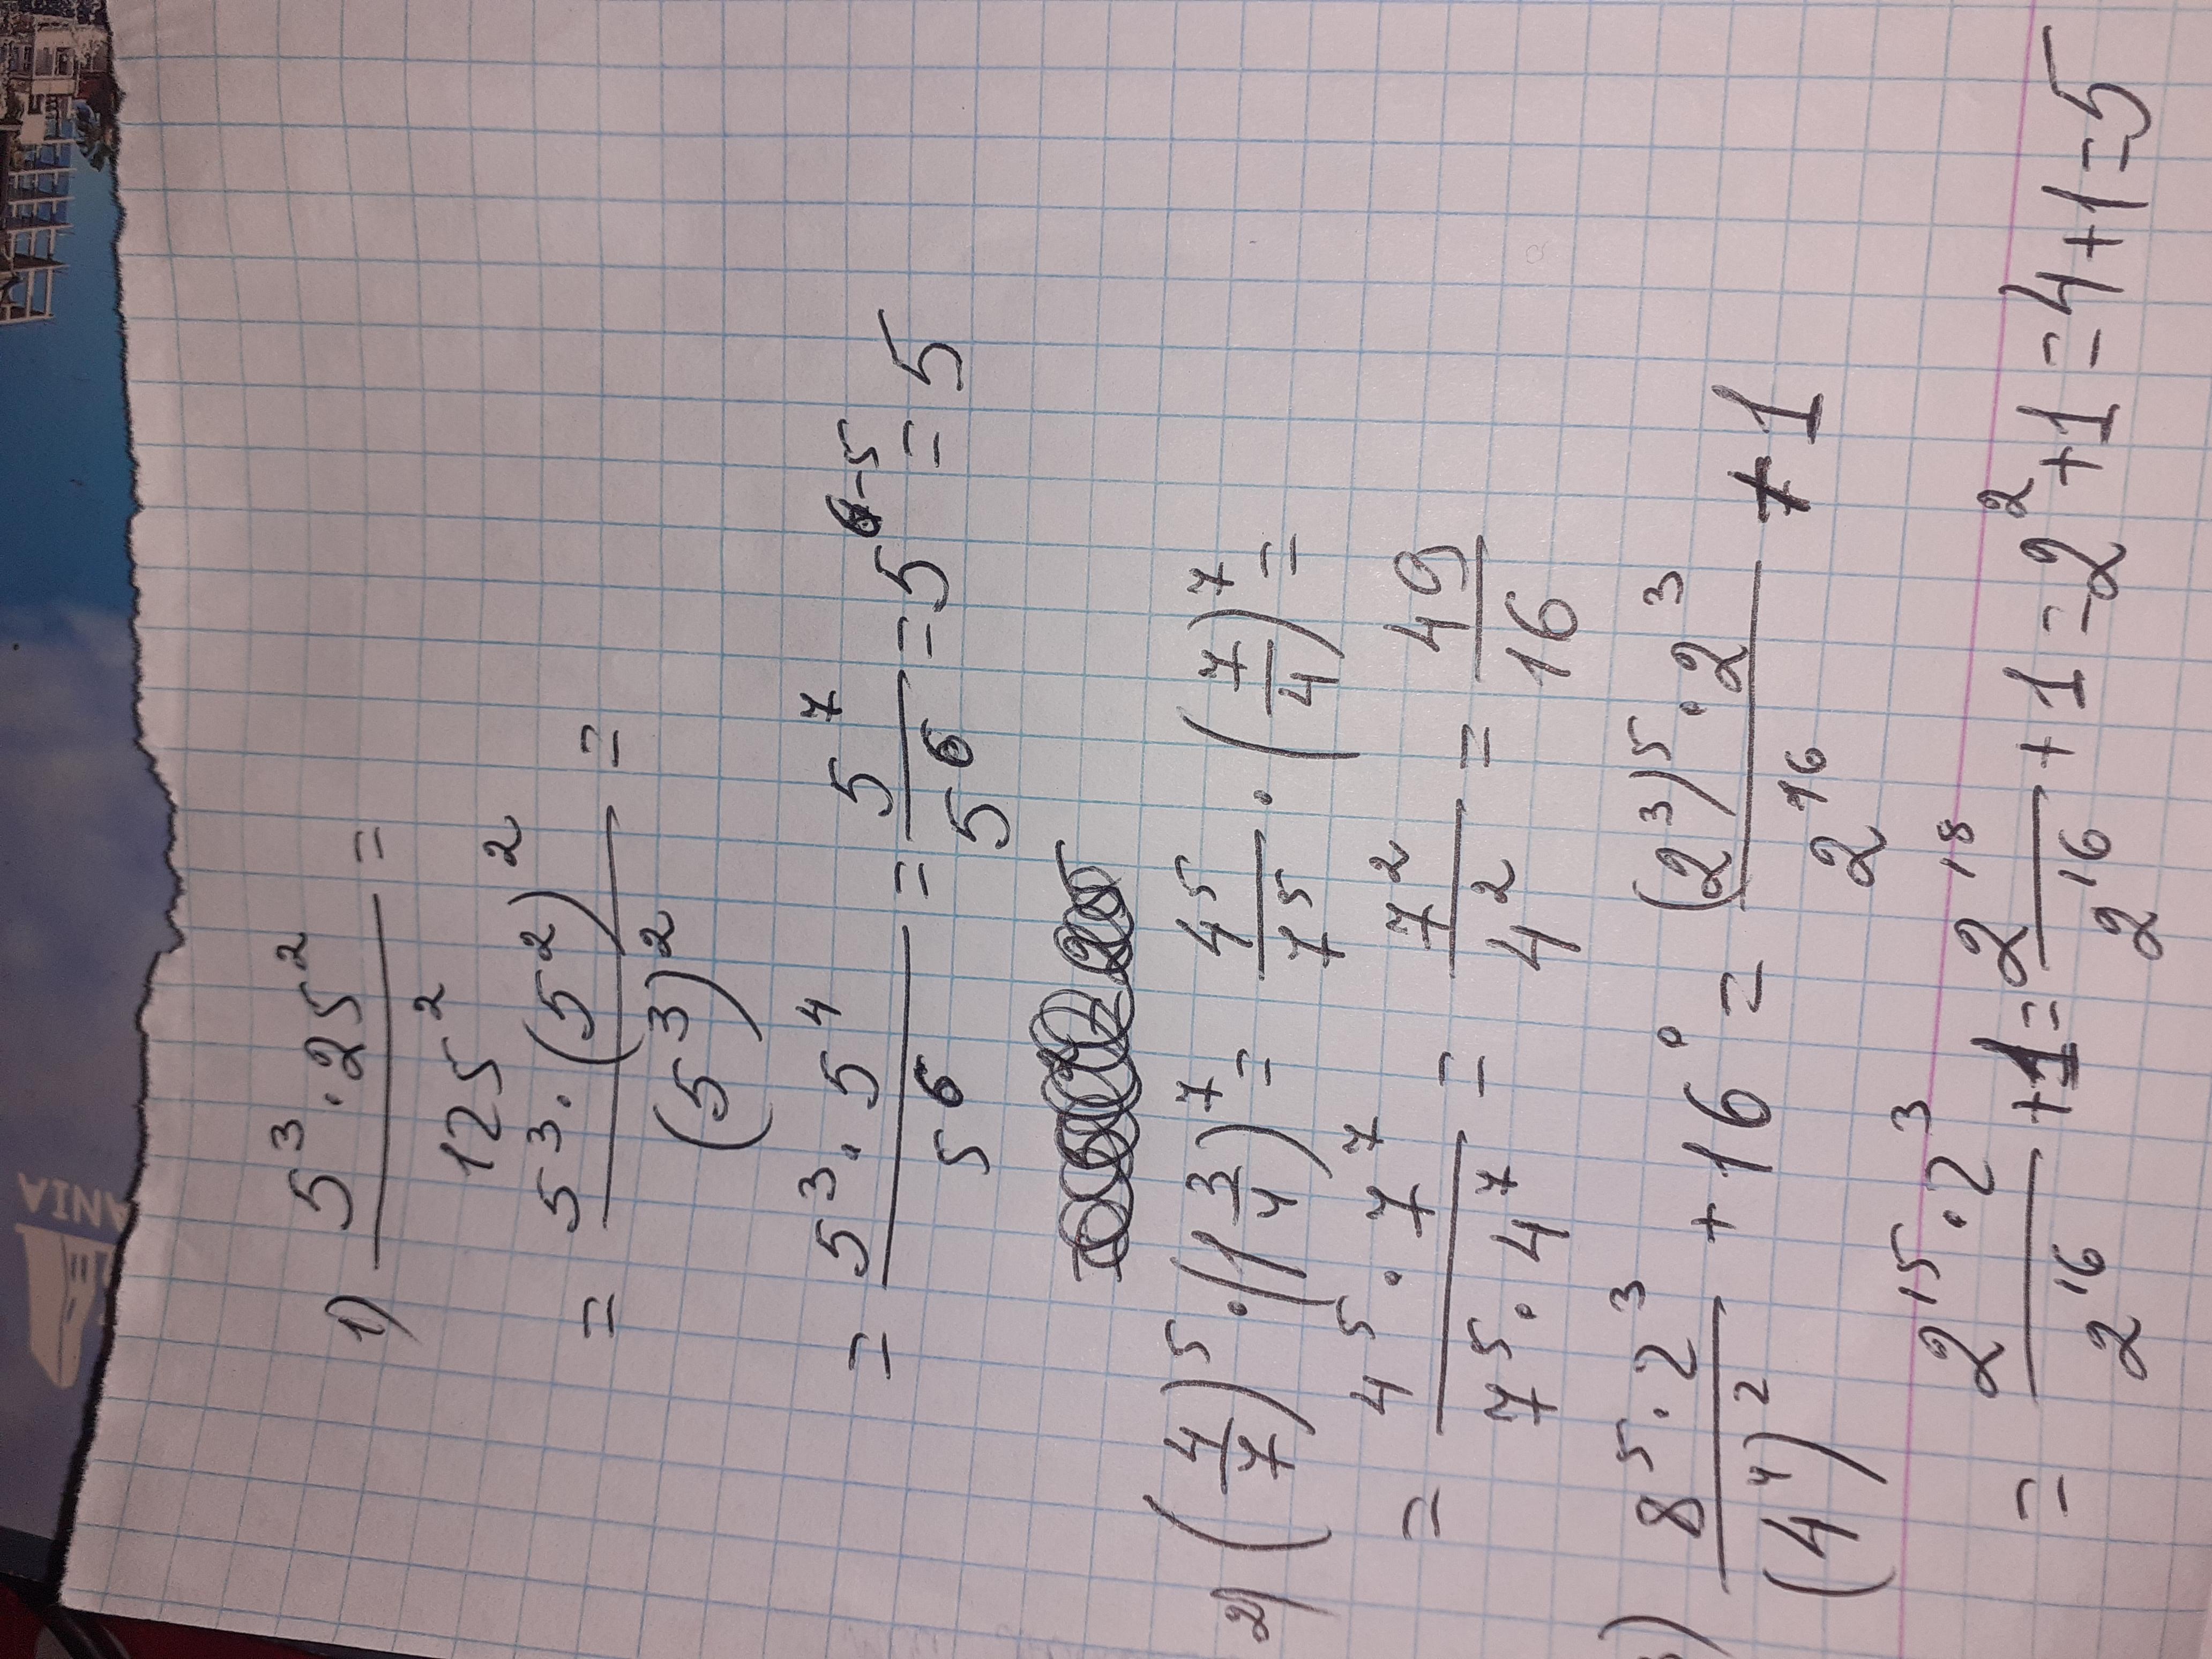 1) 5³·25² / 125² =
= 5³·(5²)² / (5³)² =
= 5³·5⁴ / 5⁶ = 5⁷ / 5⁶ = 5⁶⁻⁵ = 5
2) (4/7)⁵·(1 3/4)⁷ = 4⁵/7⁵ · (7/4)⁷ =
= 4⁵·7⁷ / 7⁵·4⁷ = 7²/4² = 49/16
3) 8⁵·2³ / (4⁴)² + 16⁰ = (2³)⁵·2³ / 2¹⁶ + 1
= 2¹⁵·2³ / 2¹⁶ + 1 = 2¹⁸ / 2¹⁶ + 1 = 2² + 1 = 4 + 1 = 5
ANIA